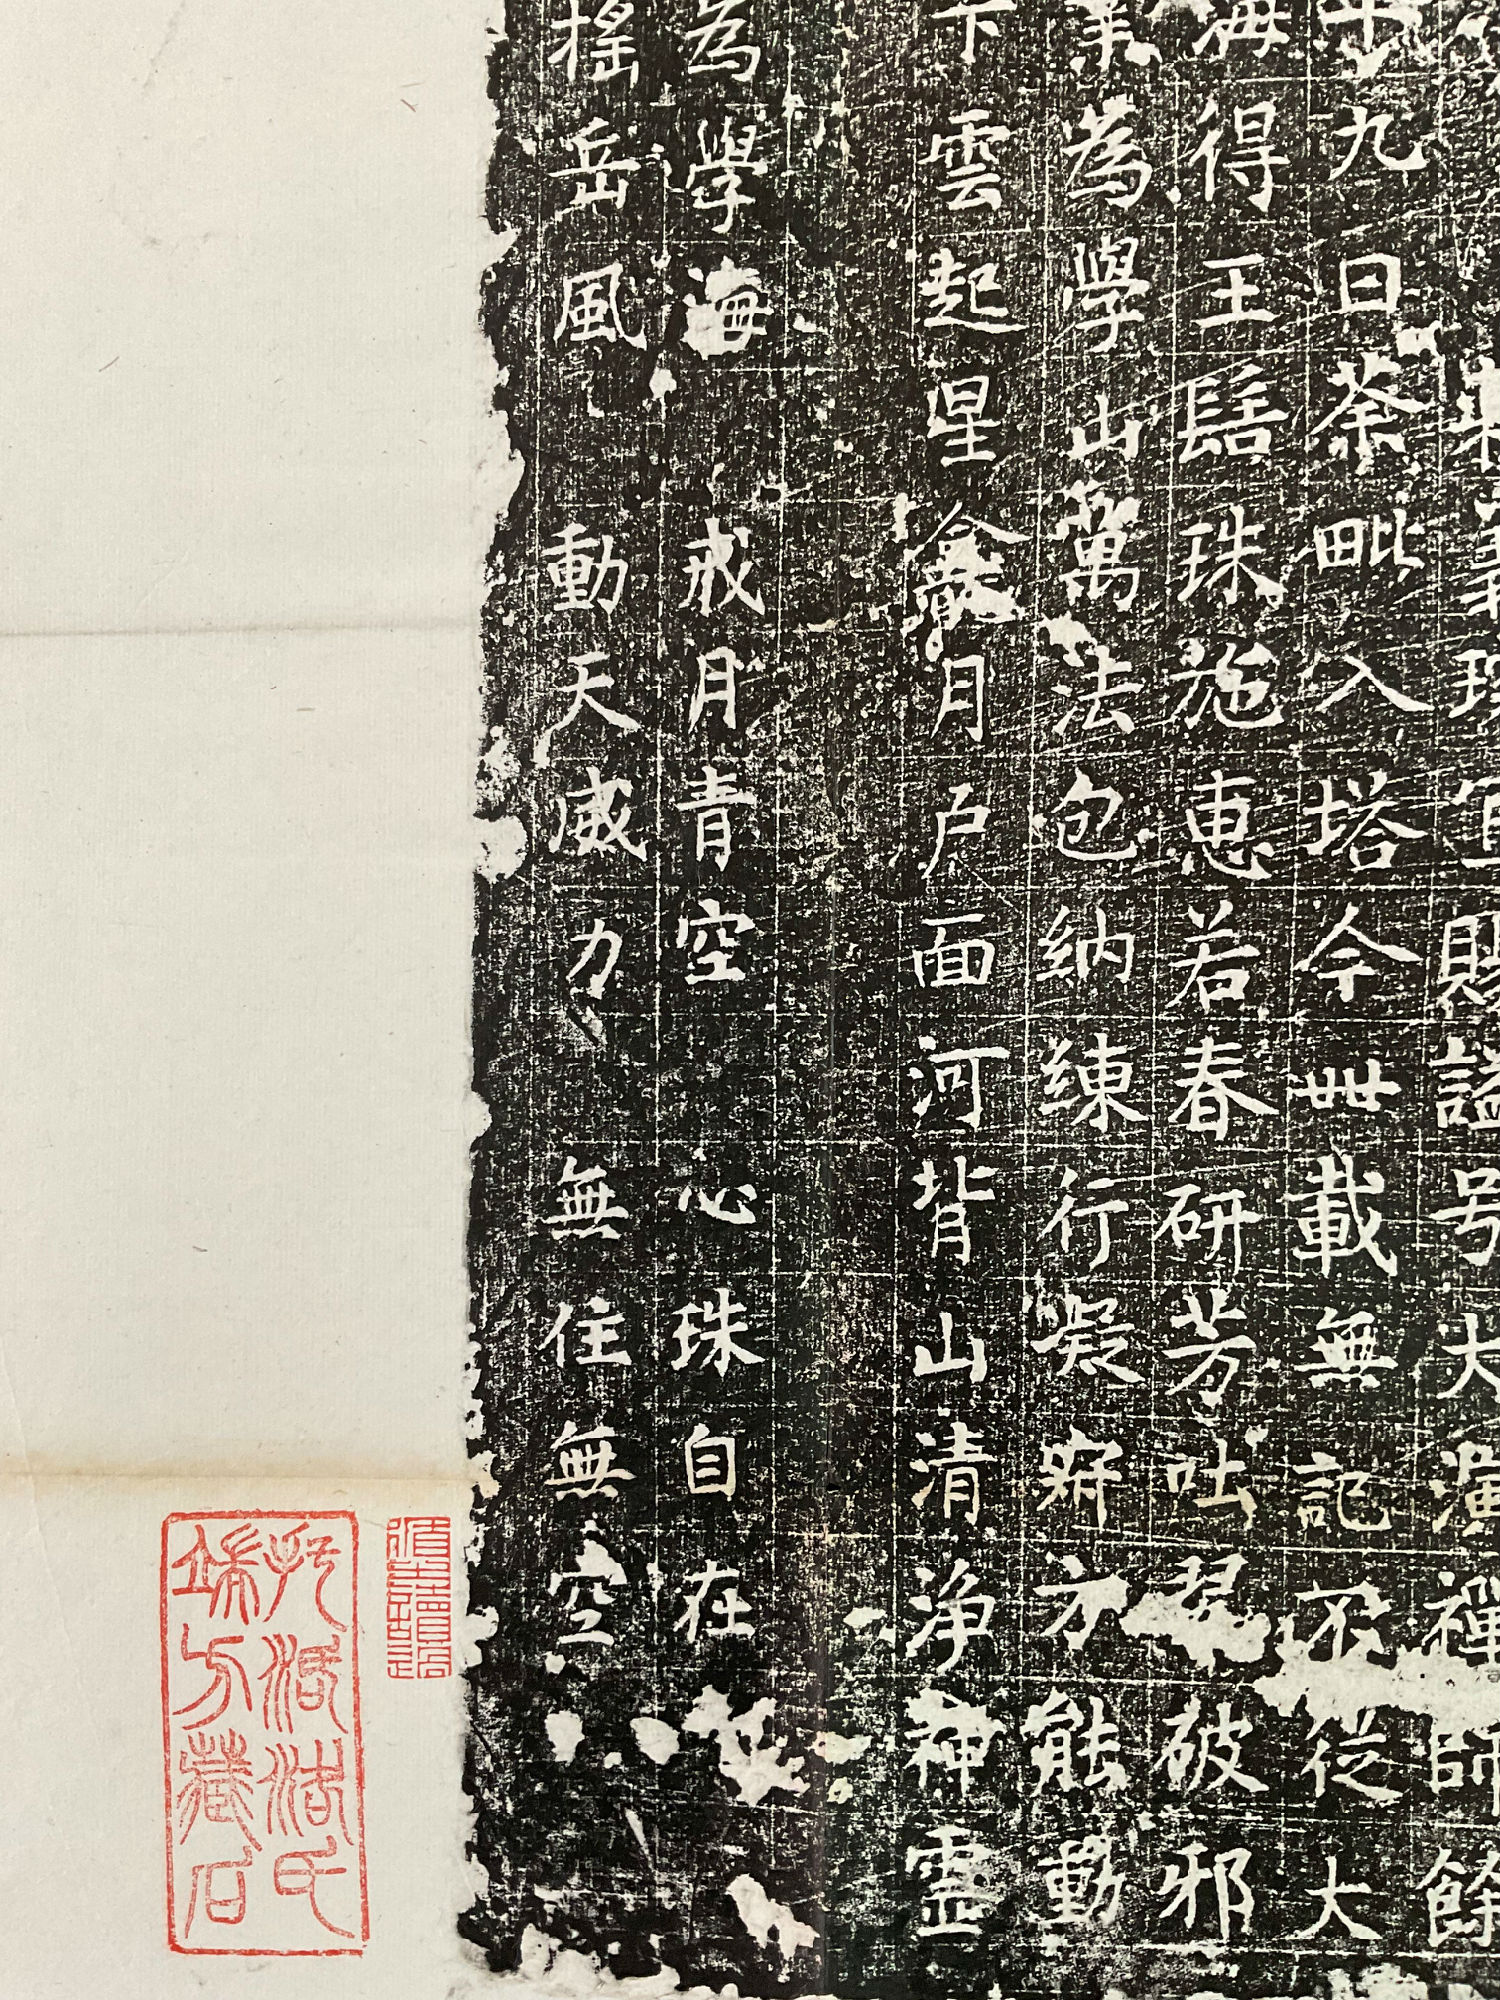 賜謚号大演禪師餘
十九日荼毗入塔今卌載無記不從大
海得王髻珠施惠若春研芳吐翠破邪
業為學山萬法包納練行凝寂方能動
下雲起星龕月戶面河背山清淨神靈
為學海 戒月青空 心珠自在
搖岳風 動天威力 無住無空
托活洛氏
端方藏石